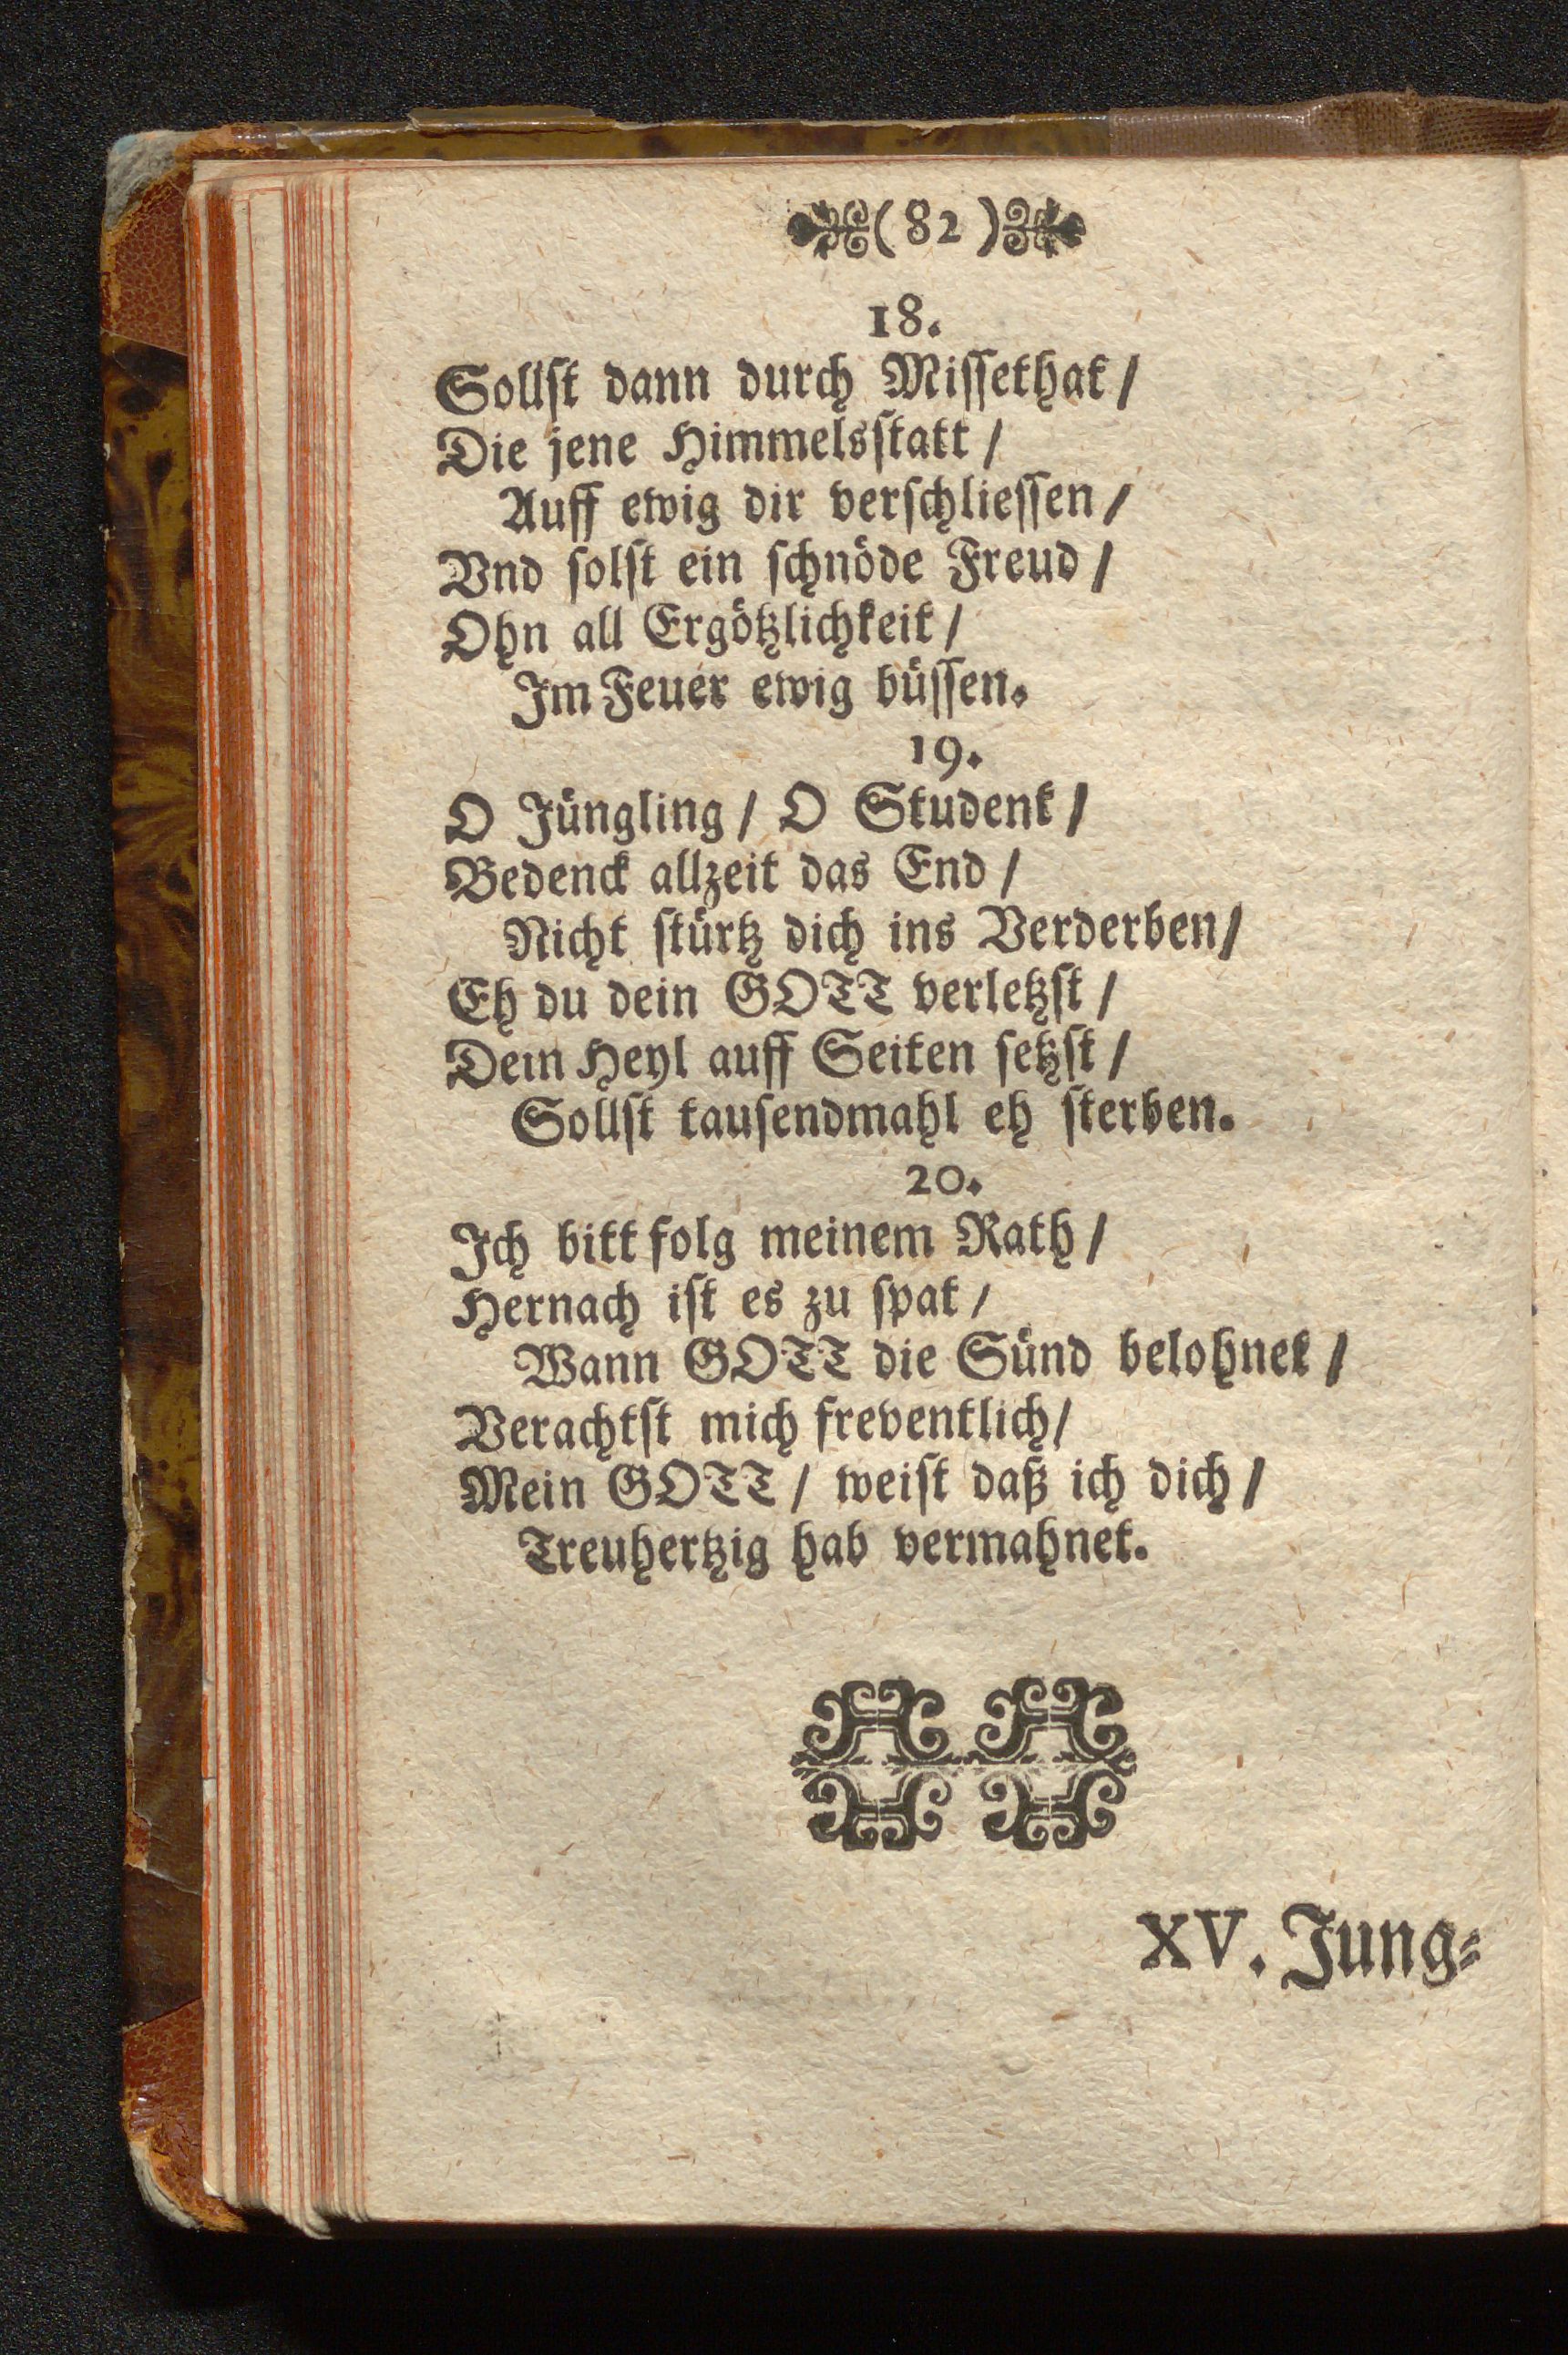 (82)
18.
Sollst dann durch Missethat /
Die jene Himmelsstatt /
Auff ewig dir verschliessen /
Vnd solst ein schnöde Freud /
Ohn all Ergötzlichkeit /
Im Feuer ewig büssen.
19.
O Jüngling / O Student /
Bedenck allzeit das End /
Nicht stürtz dich ins Verderben /
Eh du dein GOTT verletzst /
Dein Heyl auff Seiten setzst /
Sollst tausendmahl eh sterben.
20.
Ich bitt folg meinem Rath /
Hernach ist es zu spat /
Wann GOTT die Sünd belohnet /
Verachtst mich freventlich /
Mein GOTT / weist daß ich dich /
Treuhertzig hab vermahnet.
XV. Jung=